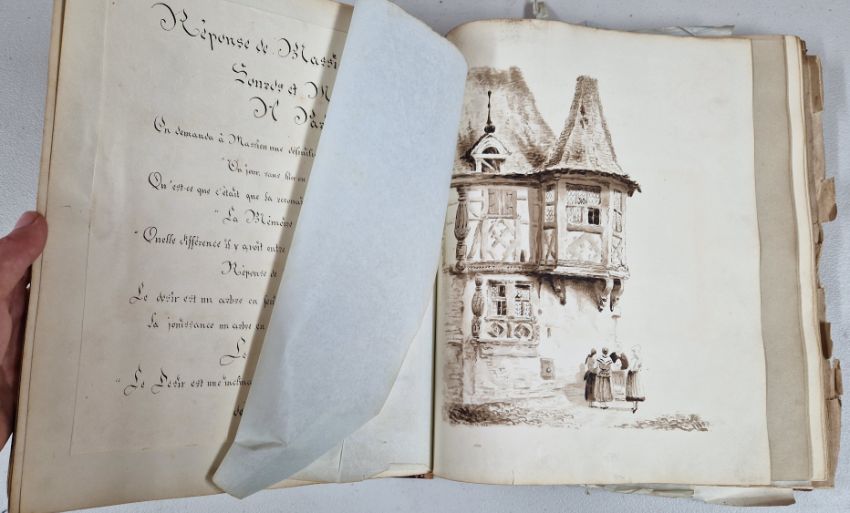 Réponse de Massi
Sourds et M
N Par
On demanda à Massieu une définiti
"Un jour, sans hier ou
Qu'est-ce que c'était que la reconnai
"La Mémoire
"Quelle différence il y avoit entre
Réponse de
Le désir est un arbre en feu
la jouissance un arbre en
Le
"Le Désir est une inclina
de